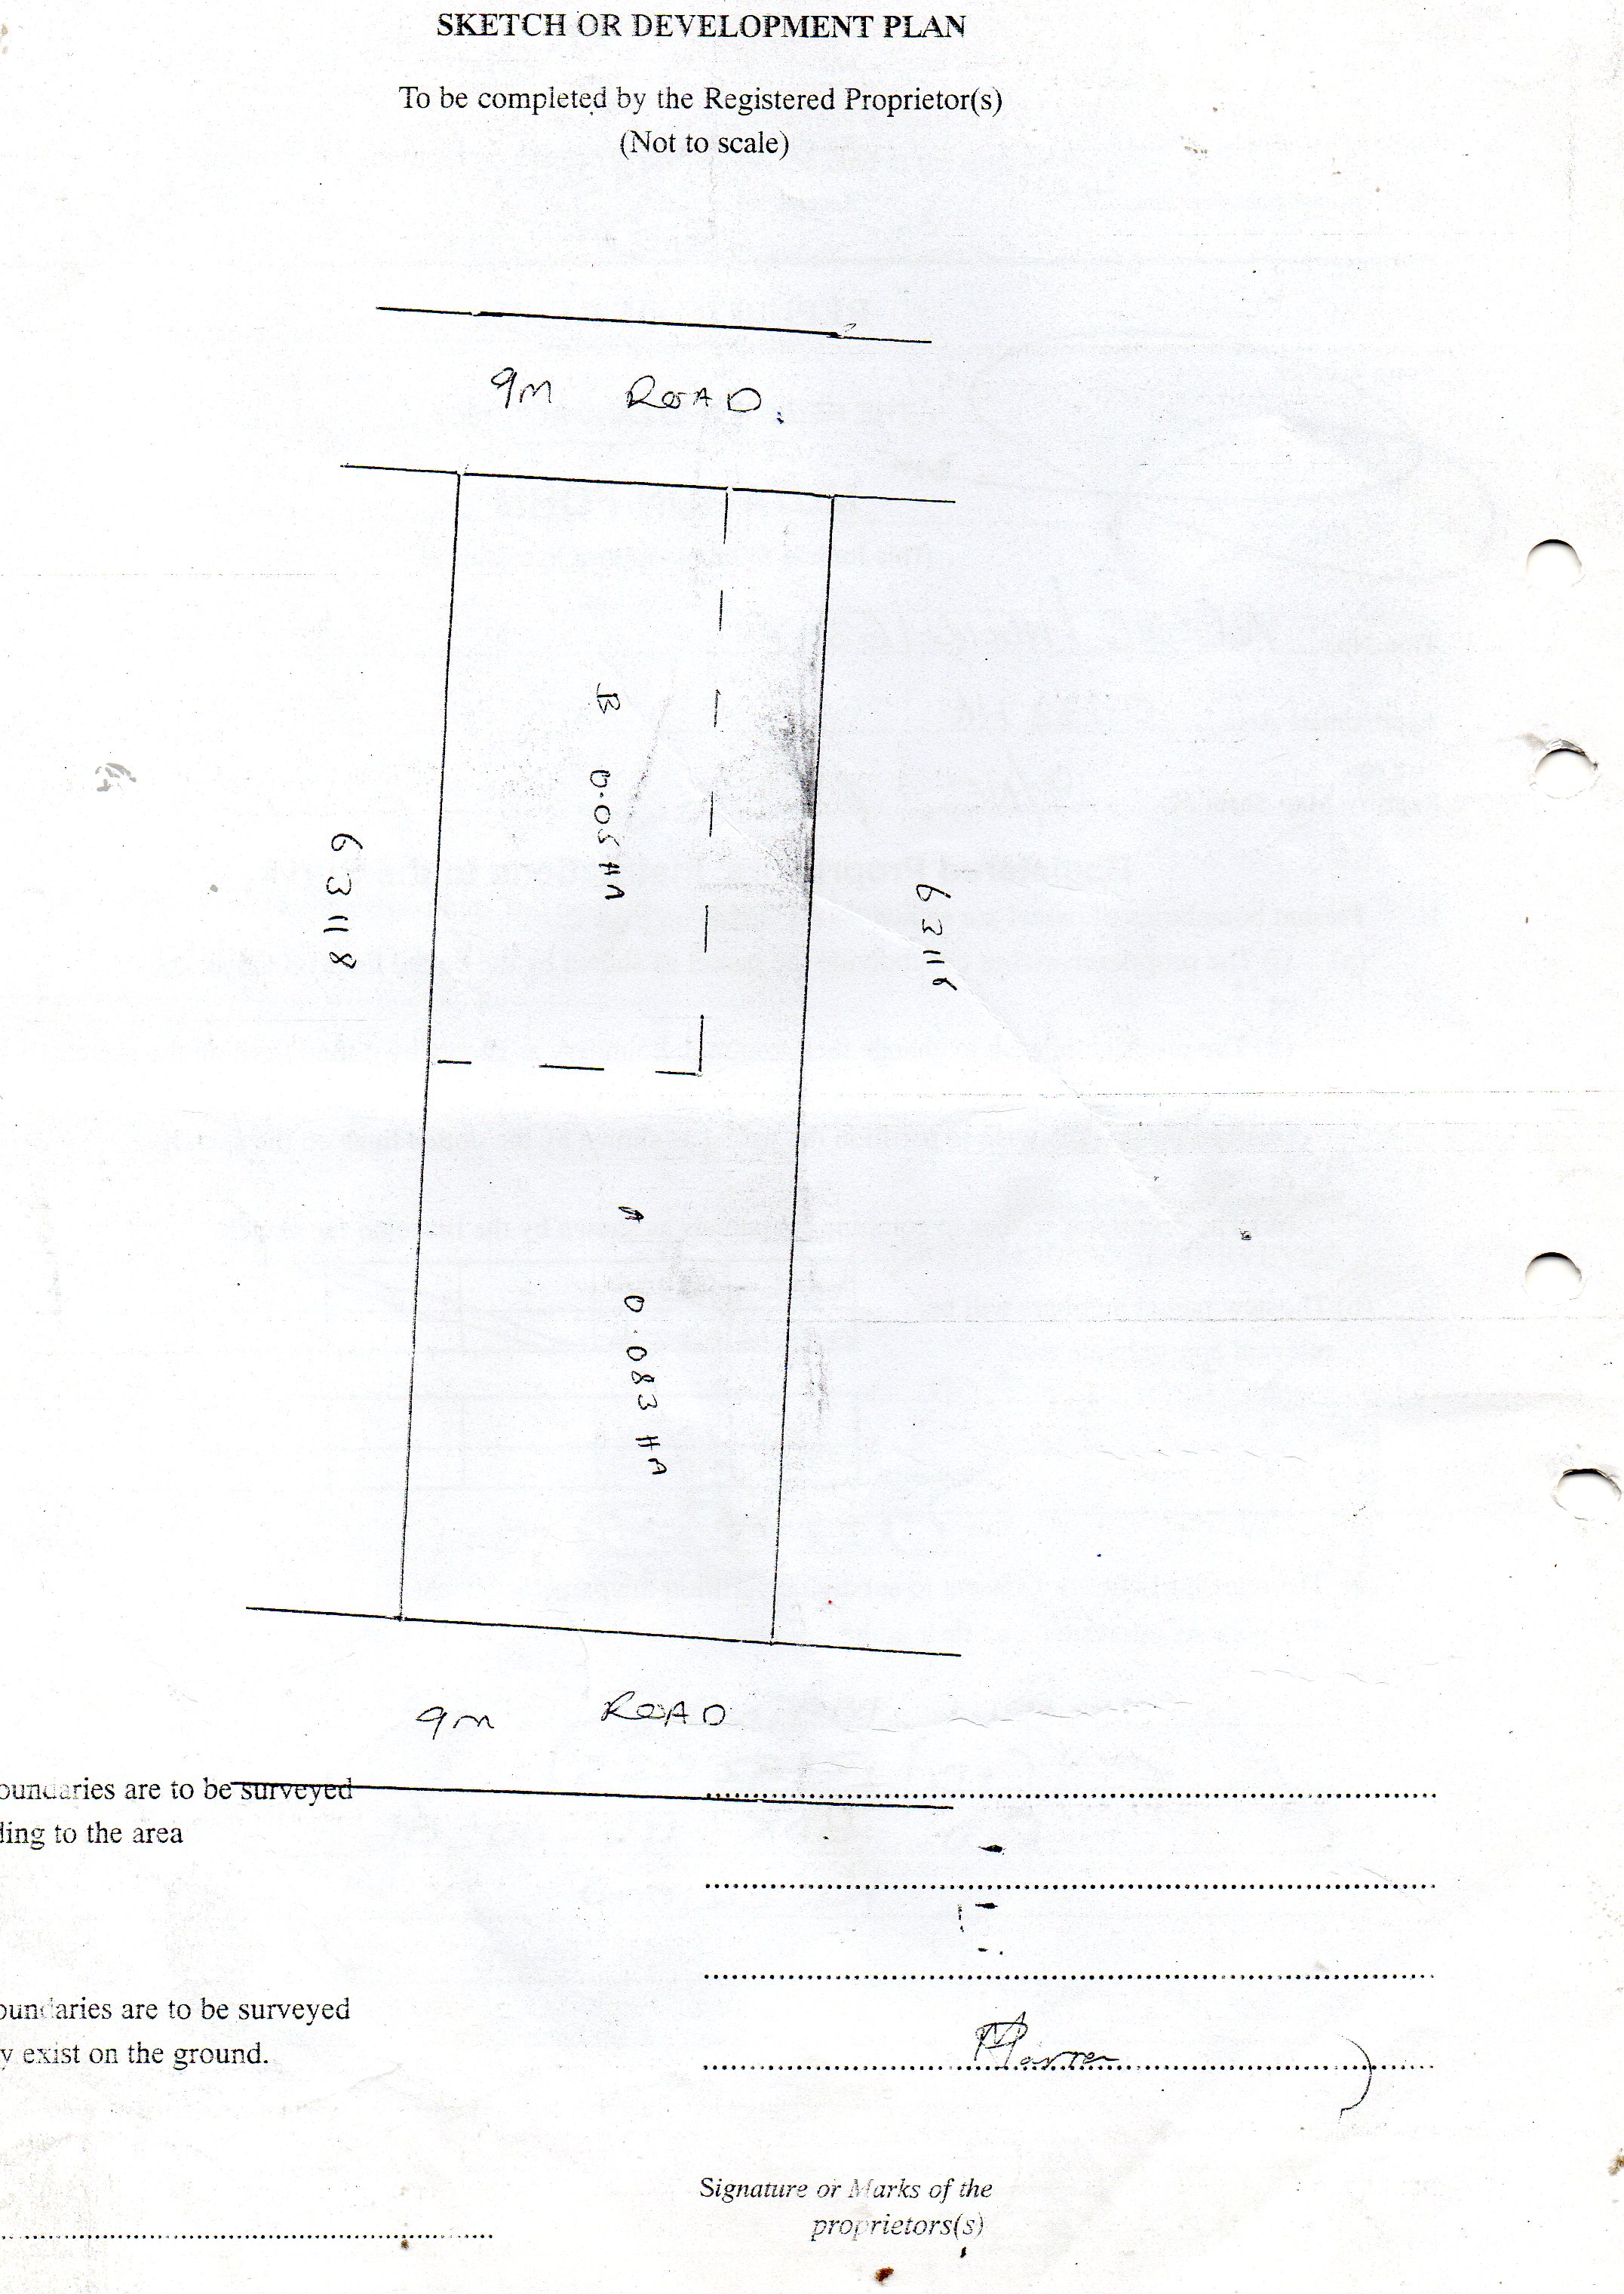 SKETCH OR DEVELOPMENT PLAN
To be completed by the Registered Proprietor(s)
(Not to scale)
9M ROAD.
B 0.05 HA
63118
63116
A 0.083 HA
9m ROAD
oundaries are to be surveyed
ding to the area
oundaries are to be surveyed
y exist on the ground.
Signature or Marks of the
proprietors(s)